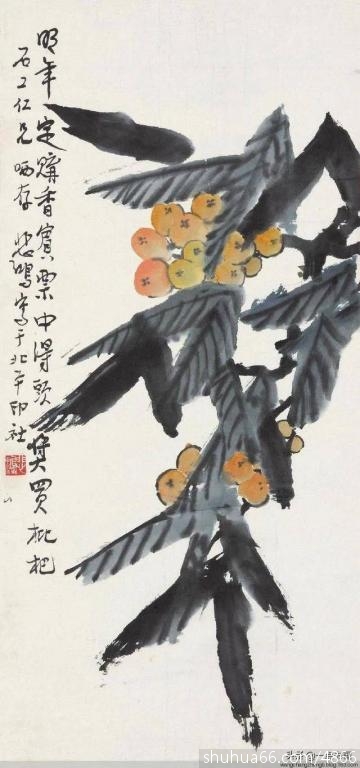 明年定購香賓票中得頭獎買枇杷
石工仁兄哂存 悲鴻寫于北平印社
悲鴻
shuhua66.com/74866